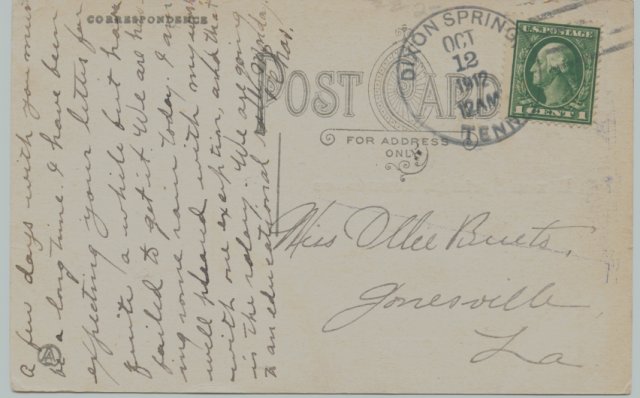 CORRESPONDENCE
POST CARD
FOR ADDRESS
ONLY
DIXON SPRING
OCT
12
1912
12 AM
TENN
U.S. POSTAGE
1 CENT 1
Miss Ollie Buets,
Jonesville
La
A few days with you must
be a long time. I have been
expecting your letter for
quite a while but have
failed to get it. We are hav-
ing some rain today. I am
well pleased with my work
with one exception, and that
is the salary. We are going
to an educational rally Monday.
Chas.
A